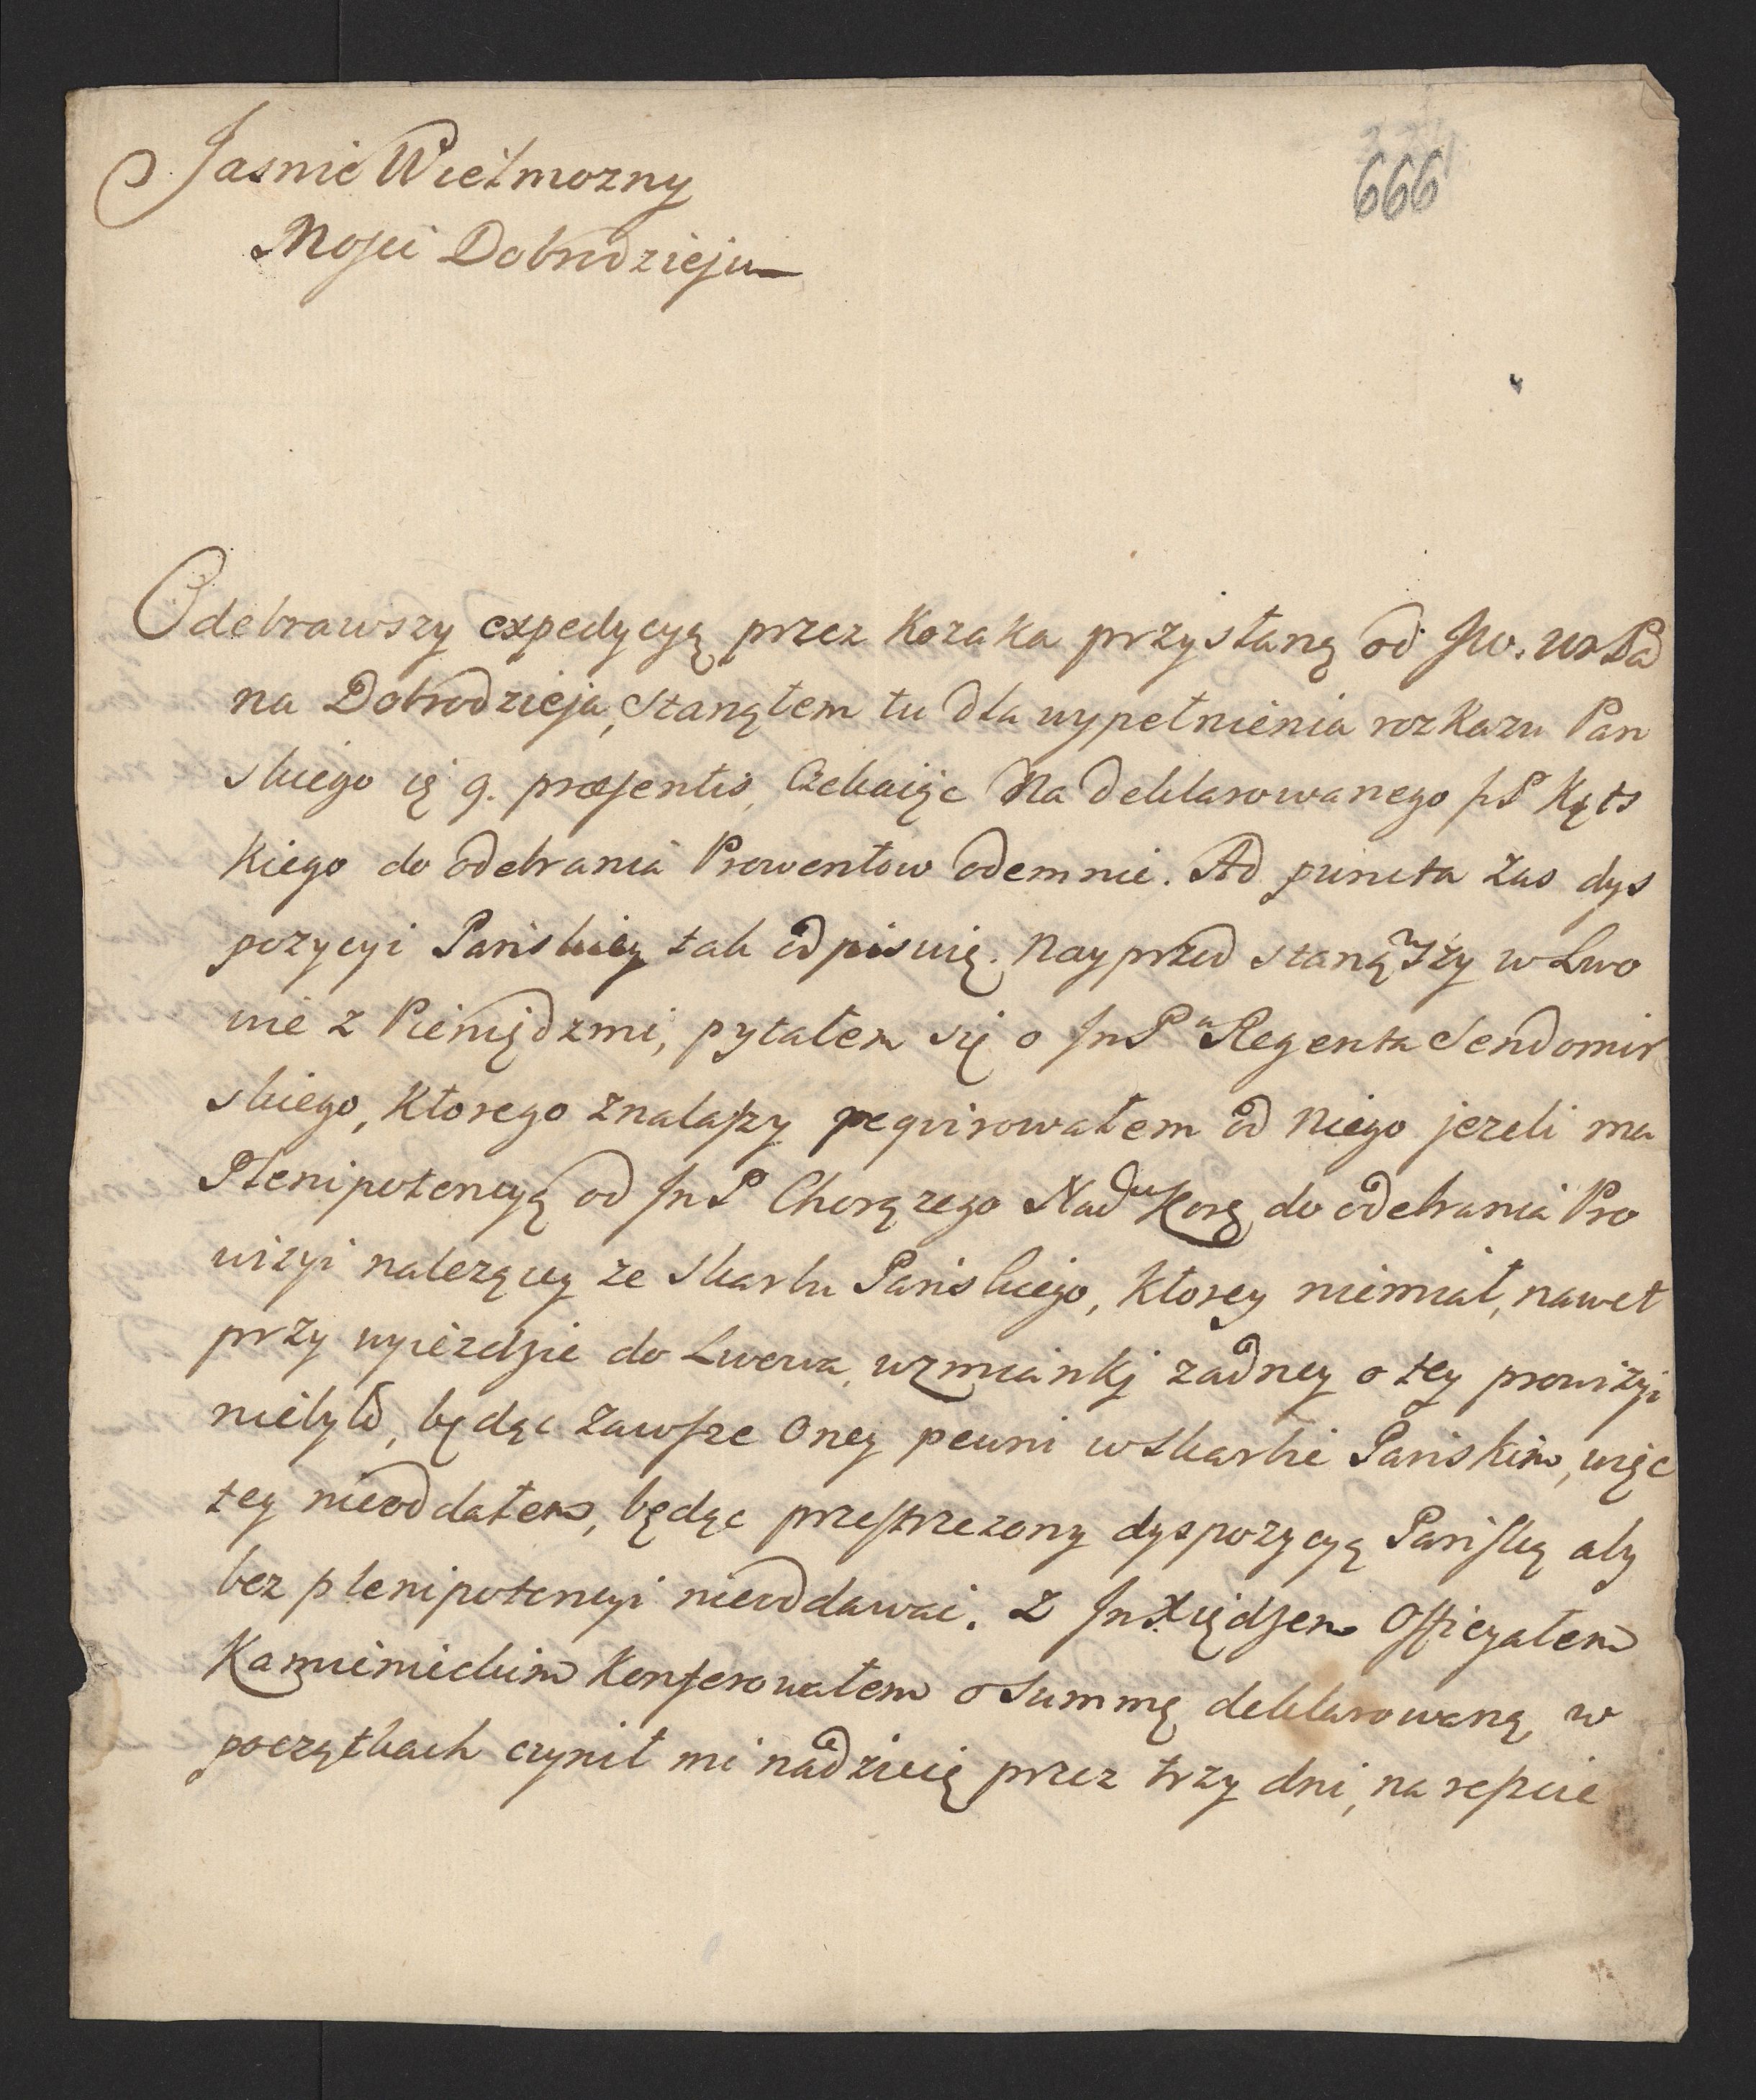 666
Jasnie Wielmozny
Mosci Dobrodzieju
Odebrawszy expedycyą przez Kozaka przysłaną od JW. WPa
na Dobrodzieja, stanąłem tu dla wypełnienia rozkazu Pan
skiego 9. præsentis, Czekaiąc Na deklarowanego JP Kąts
kiego do odebrania Prowentow odemnie. Ad puncta zas dys
pozycyi Panskiey tak odpisuię. Nayprzod stanąwszy w Lwo
wie z Pieniędzmi, pytałem się o JmPa Regenta Sendomir
skiego, Ktorego znalaszy reqvirowałem od Niego jezeli ma
Plenipotencyą od JmP Chorązego Nadwo Kor do odebrania Pro
wizyi nalezącey ze Skarbu Panskiego, Ktorey niemiał, nawet
przy wyiezdzie do Lwowa, wzmianki zadney o tey prowizyi
niebyło, będąc zawsze Oney pewni w Skarbie Panskim, więc
tey nieoddałem, będąc przestrzezony dyspozycyą Panską aby
bez plenipotencyi nieoddawac. Z Jm Xiędzem Officyałem
Kamienieckim Konferowałem o Summę deklarowaną, w
początkach czynił mi nadzieię przez trzy dni, na reszcie